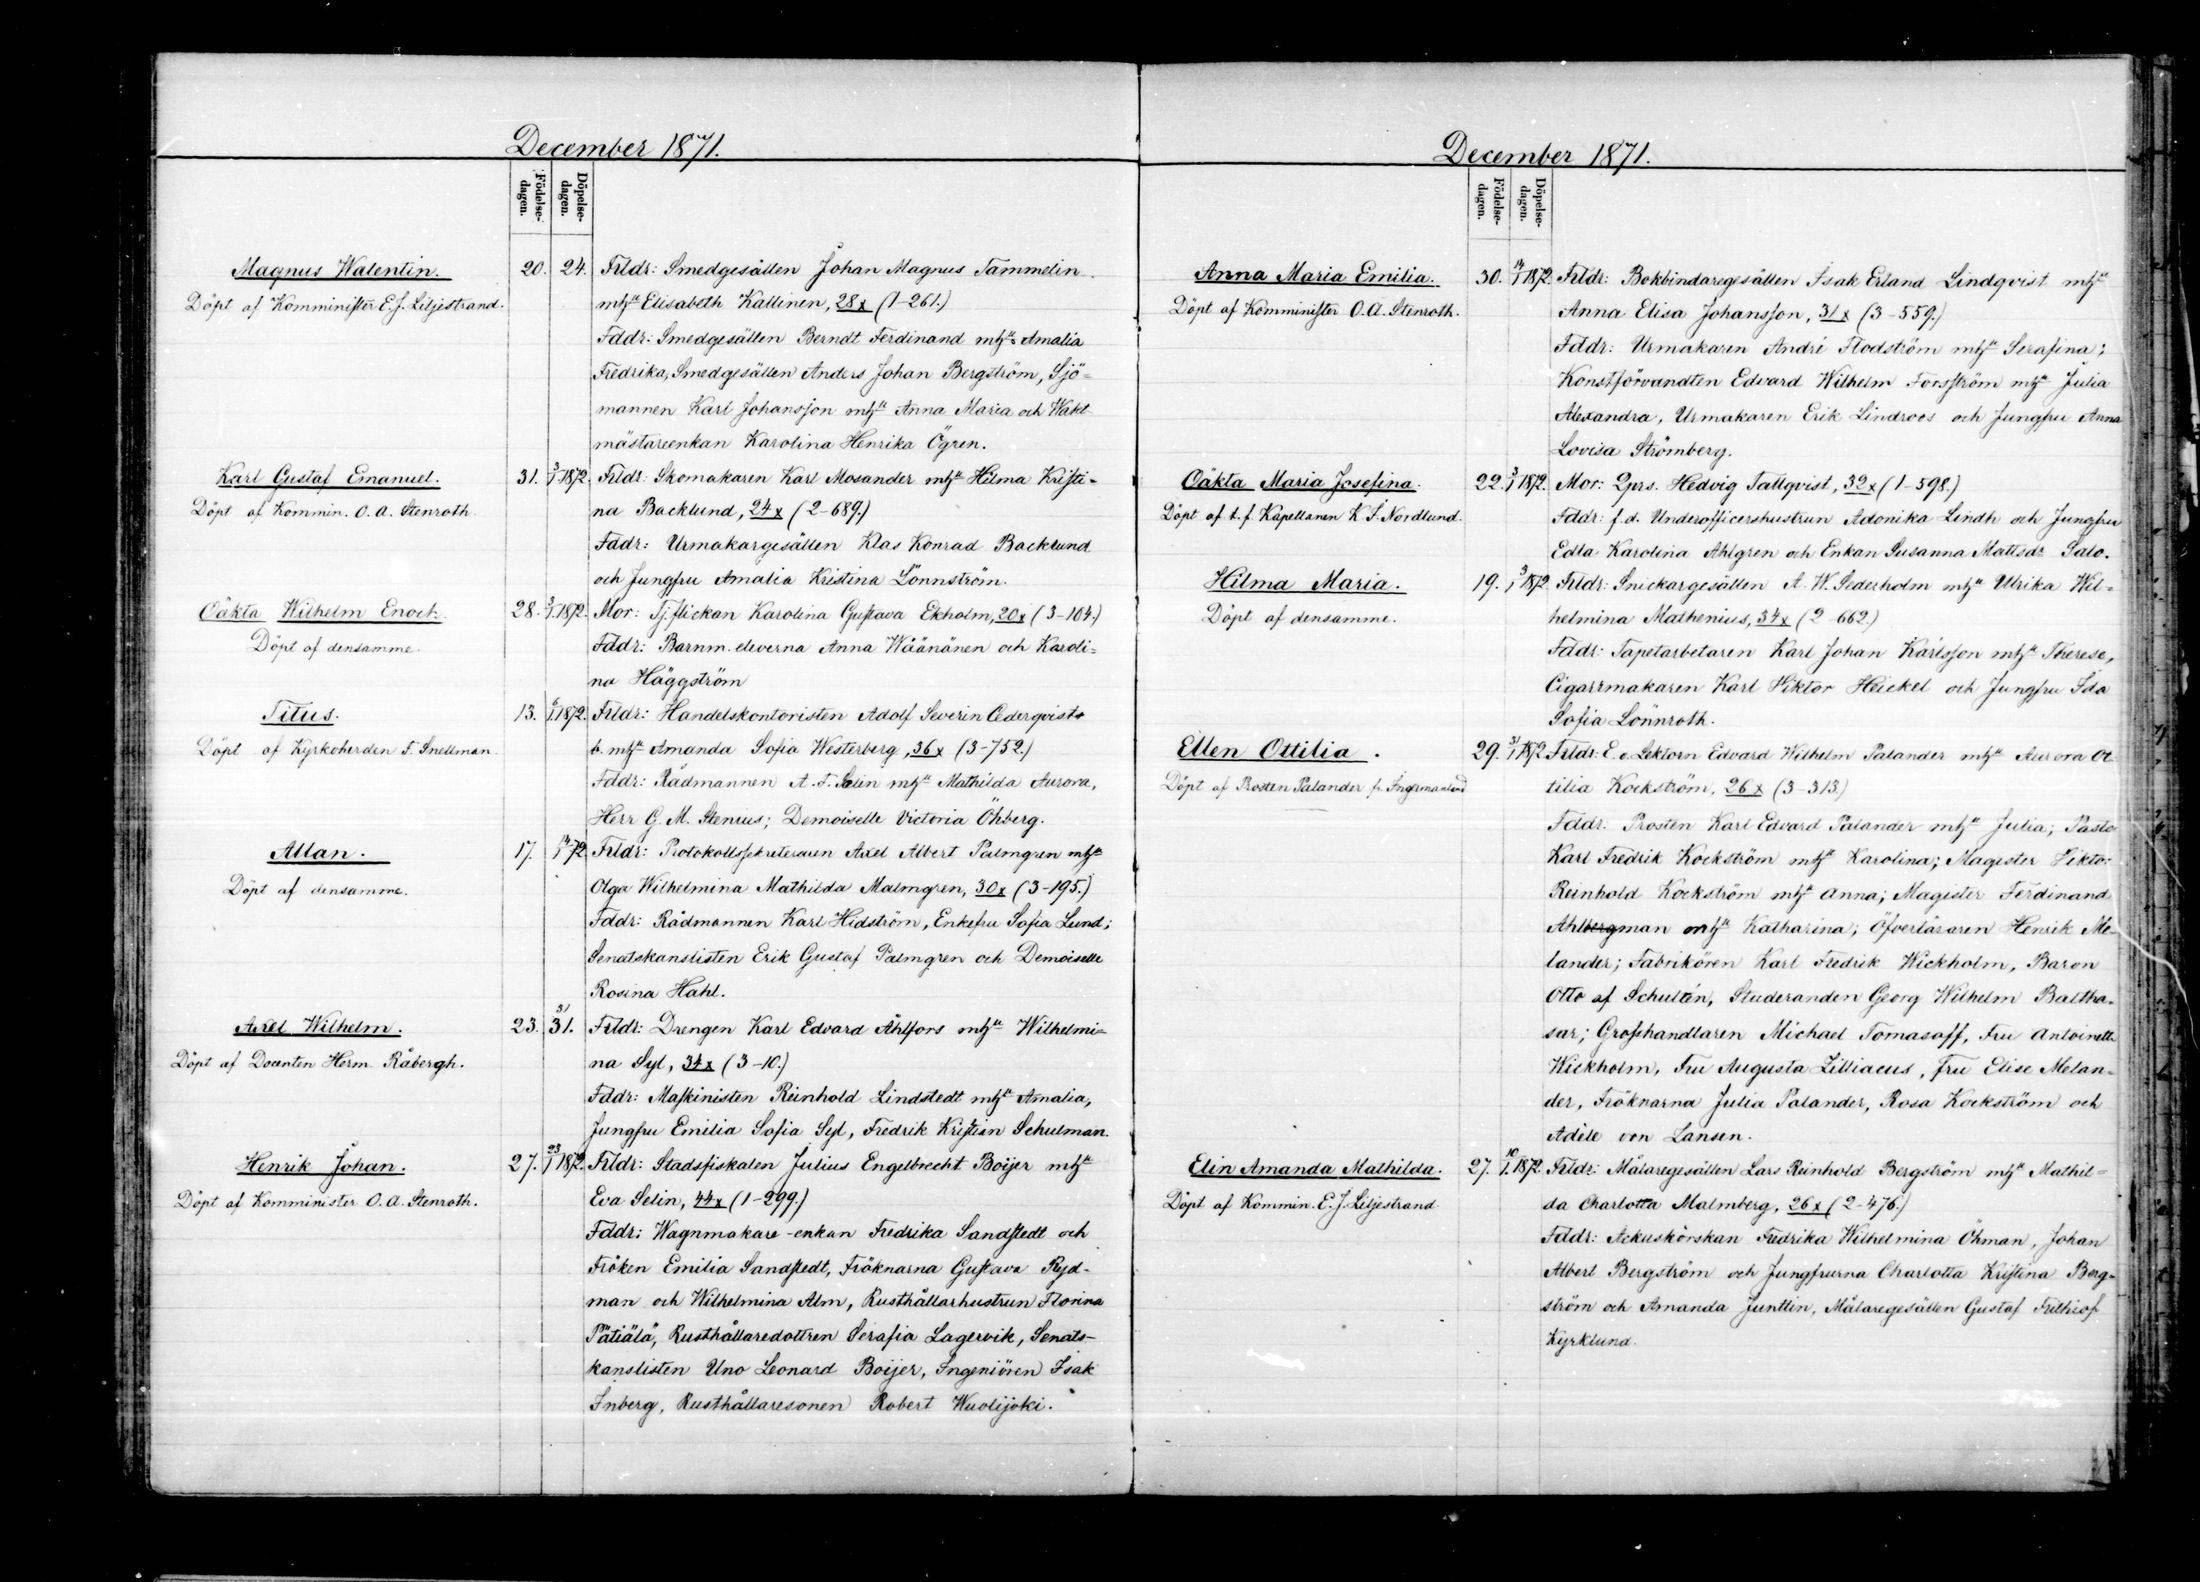 December 1871.
Födelse-dagen.
Döpelse-dagen.
Magnus Walentin. 20. 24. Frldr: Smedgesällen Johan Magnus Tammelin
Döpt af Komminister E. J. Liljestrand. mh Elisabeth Kallinen, 28 x (1-261.)
Fddr: Smedgesällen Berndt Ferdinand mh Amalia
Fredrika, Smedgesällen Anders Johan Bergström, Sjö-
mannen Karl Johansson mh Anna Maria och Wakt
mästareenkan Karolina Henrika Ögren.
Karl Gustaf Emanuel. 31. 3/1 1872. Frldr: Skomakaren Karl Mosander mh Hilma Kristi-
Döpt af Kommin. O. A. Stenroth. na Backlund, 24 x (2-689.)
Fddr: Urmakargesällen Klas Konrad Backlund
och Jungfru Amalia Kristina Lönnström.
Oäkta Wilhelm Enoch. 28. 3/1 1872. Mor: Tj. flickan Karolina Gustava Ekholm, 20 x (3-104.)
Döpt af densamme. Fddr: Barnm. eleverna Anna Wäänänen och Karoli-
na Häggström
Titus. 13. 6/1 1872. Frldr: Handelskontoristen Adolf Severin Cederqvist
Döpt af Kyrkoherden F. Snellman. mh Amanda Sofia Westerberg, 36 x (3-752.)
Fddr: Rådmannen A. F. Selin mh Mathilda Aurora,
Herr G. M. Stenius; Demoiselle Victoria Öhberg.
Allan. 17. 72. Frldr: Protokollssekreteraren Axel Albert Palmgren mh
Döpt af densamme. Olga Wilhelmina Mathilda Malmgren, 30 x (3-195.)
Fddr: Rådmannen Karl Hidström, Enkefru Sofia Lund;
Senatskanslisten Erik Gustaf Palmgren och Demoiselle
Rosina Hahl.
Axel Wilhelm. 23. 31. Frldr: Drengen Karl Edvard Ahlfors mh Wilhelmi-
Döpt af Docenten Herm. Råbergh. na Syl, 34 x (3-10.)
Fddr: Maskinisten Reinhold Lindstedt mh Amalia,
Jungfru Emilia Sofia Syl, Fredrik Kristian Schulman.
Henrik Johan. 27. 23/1 1872. Frldr: Stadsfiskalen Julius Engelbrecht Boijer mh
Döpt af Komminister O. A. Stenroth. Eva Selin, 44 x (1-299.)
Fddr: Wagnmakare-enkan Fredrika Sandstedt och
Fröken Emilia Sandstedt, Fröknarna Gustava Ryd-
man och Wilhelmina Alm, Rusthållarhustrun Florina
Pätiälä, Rusthållaredottren Serafia Lagervik, Senats-
kanslisten Uno Leonard Boijer, Ingeniören Isak
Inberg, Rusthållaresonen Robert Wuolijoki.
December 1871.
Födelse-dagen.
Döpelse-dagen.
Anna Maria Emilia. 30. 14/1 1872. Frldr: Bokbindaregesällen Isak Erland Lindqvist mh
Döpt af Komminister O. A. Stenroth. Anna Elisa Johansson, 31 x (3-559.)
Fddr: Urmakaren André Flodström mh Serafina;
Konstförvandten Edvard Wilhelm Forsström mh Julia
Alexandra, Urmakaren Erik Lindroos och Jungfru Anna
Lovisa Strömberg.
Oäkta Maria Josefina. 22. 3/1 1872. Mor: Qprs. Hedvig Tallqvist, 32 x (1-598.)
Döpt af t. f. Kapellanen K. S. Nordlund. Fddr: f. d. Underofficershustrun Adonika Lindh och Jungfru
Edla Karolina Ahlgren och Enkan Susanna Mattsdr Salo.
Hilma Maria. 19. 3/1 1872 Frldr: Snickargesällen A. W. Sederholm mh Ulrika Wil-
Döpt af densamme. helmina Malhenius, 34 x (2-662.)
Fddr: Tapetarbetaren Karl Johan Karlsson mh Therese,
Cigarrmakaren Karl Viktor Heickel och Jungfru Ida
Sofia Lönnroth.
Ellen Ottilia. 29. 31/1 1872 Frldr: E. o. Lektorn Edvard Wilhelm Palander mh Aurora Ot
Döpt af Prosten Palander fr. Ingermanland tilia Kockström, 26 x (3-313.)
Fddr. Prosten Karl Edvard Palander mh Julia; Pasto
Karl Fredrik Kockström mh Karolina; Magister Viktor
Reinhold Kockström mh Anna; Magister Ferdinand
Ahlbergman mh Katharina; Öfverläraren Henrik Me-
lander; Fabrikören Karl Fredrik Wickholm, Baron
Otto af Schultén, Studeranden Georg Wilhelm Baltha-
sar; Grosshandlaren Michael Tomasoff, Fru Antoinette
Wickholm, Fru Augusta Zilliacus, Fru Elise Melan-
der, Fröknarna Julia Palander, Rosa Kockström och
Adèle von Lansen.
Elin Amanda Mathilda. 27. 10/1 1872. Frldr: Målaregesällen Lars Reinhold Bergström mh Mathil-
Döpt af Kommin. E. J. Liljestrand da Charlotta Malmberg, 26 x (2-476.)
Fddr: Ackuskörskan Fredrika Wilhelmina Öhman, Johan
Albert Bergström och Jungfrurna Charlotta Kristina Berg-
ström och Amanda Junttin, Målaregesällen Gustaf Frithiof
Kyrklund.